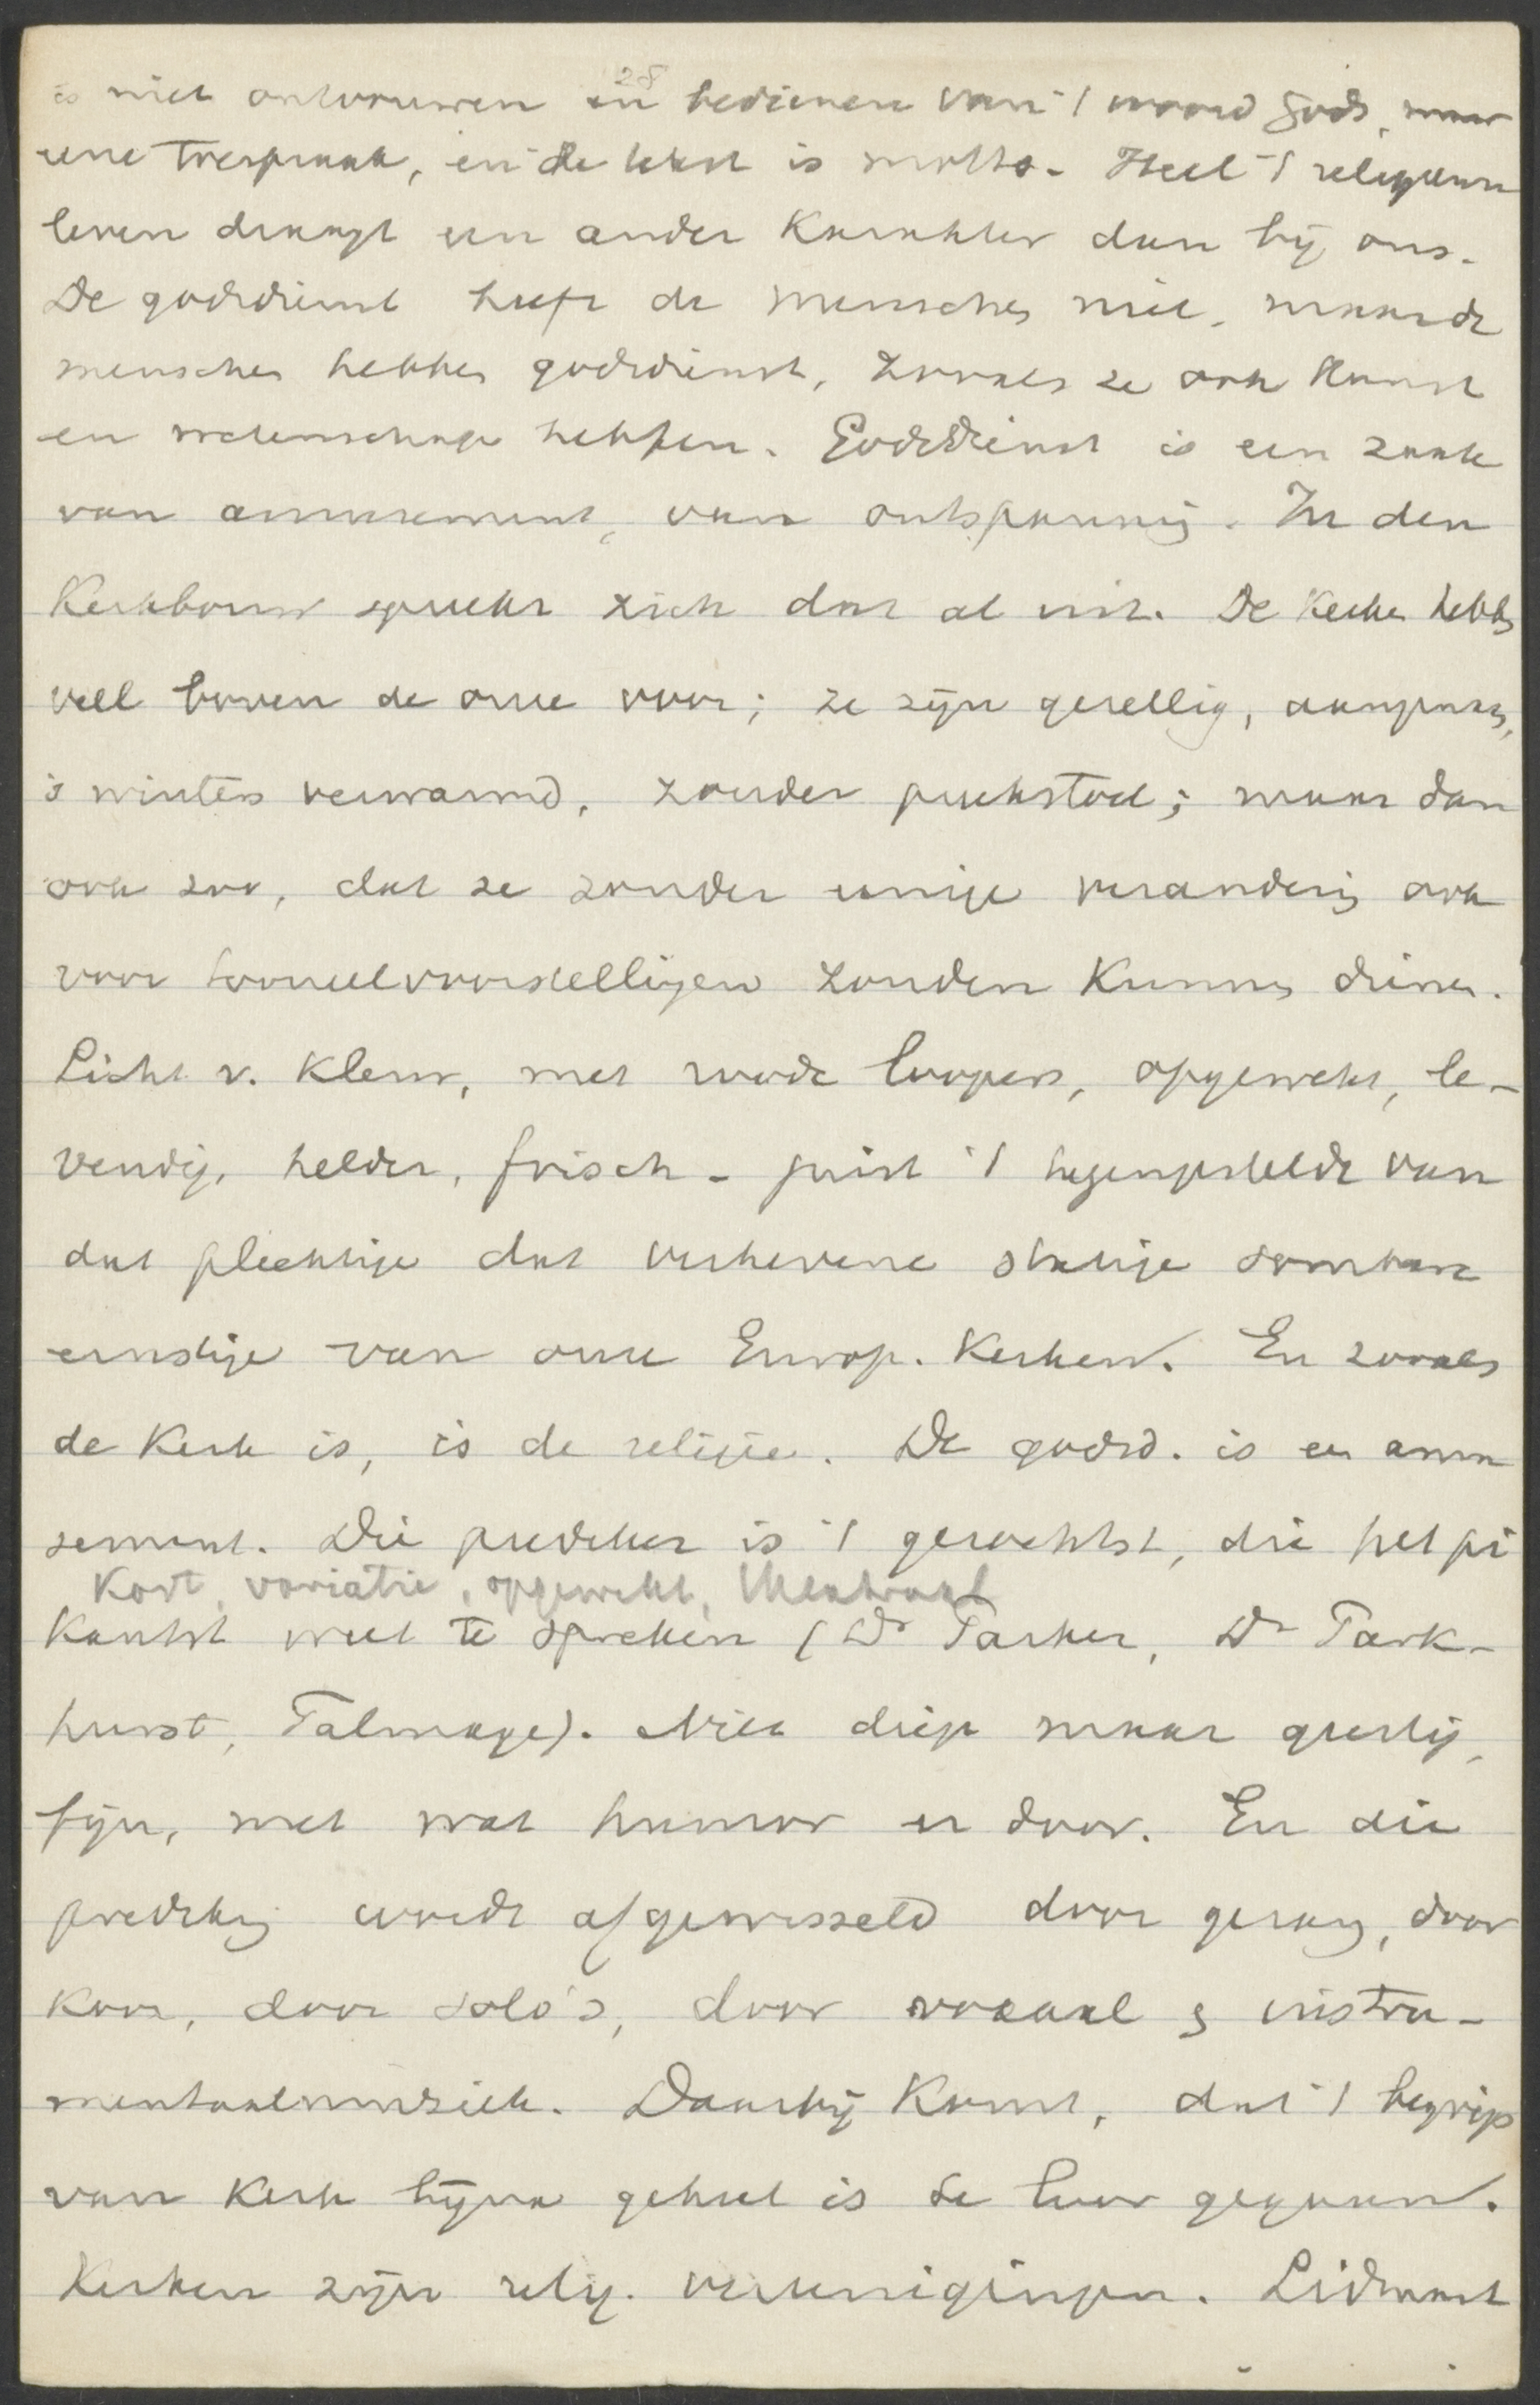 28
is niet ontvouwen en bedienen van 't woord Gods, maar
eene toespraak, en de tekst is motto. Heel 't religieuse
leven draagt een ander karakter dan bij ons.
De godsdienst heeft de menschen niet, maar de
menschen hebben godsdienst, zooals ze ook kunst
en wetenschap hebben. Godsdienst is een zaak
van amusement, van ontspanning. In den
Kerkbouw spreekt zich dat al uit. De kerken hebben
veel boven de onze voor; ze zijn gezellig, aangenaam,
's winters verwarmd, zonder preekstoel; maar dan
ook zoo, dat ze zonder eenige verandering ook
voor tooneelvoorstellingen zouden kunnen dienen.
Licht v. kleur, met roode loopers, opgewekt, le-
vendig, helder, frisch - juist 't tegengestelde van
dat plechtige dat verhevene statige sombere
ernstige van onze Europ. Kerken. En zooals
de kerk is, is de religie. De godsd. is en amu
sement. Die prediker is 't gezochtst, die het pi
Kort, variatie, opgewekt,
kantst weet te spreken (Dr Parker, Dr Park-
hurst, Talmage). Niet diep maar geestig,
fijn, met wat humor er door. En die
prediking wordt afgewisseld door gezang, door
koor, door solo's, door vocaal en instru-
mentaalmuziek. Daarbij komt, dat 't begrip
van kerk bijna geheel is te loor gegaan.
Kerken zijn relig. vereenigingen. Lidmaat